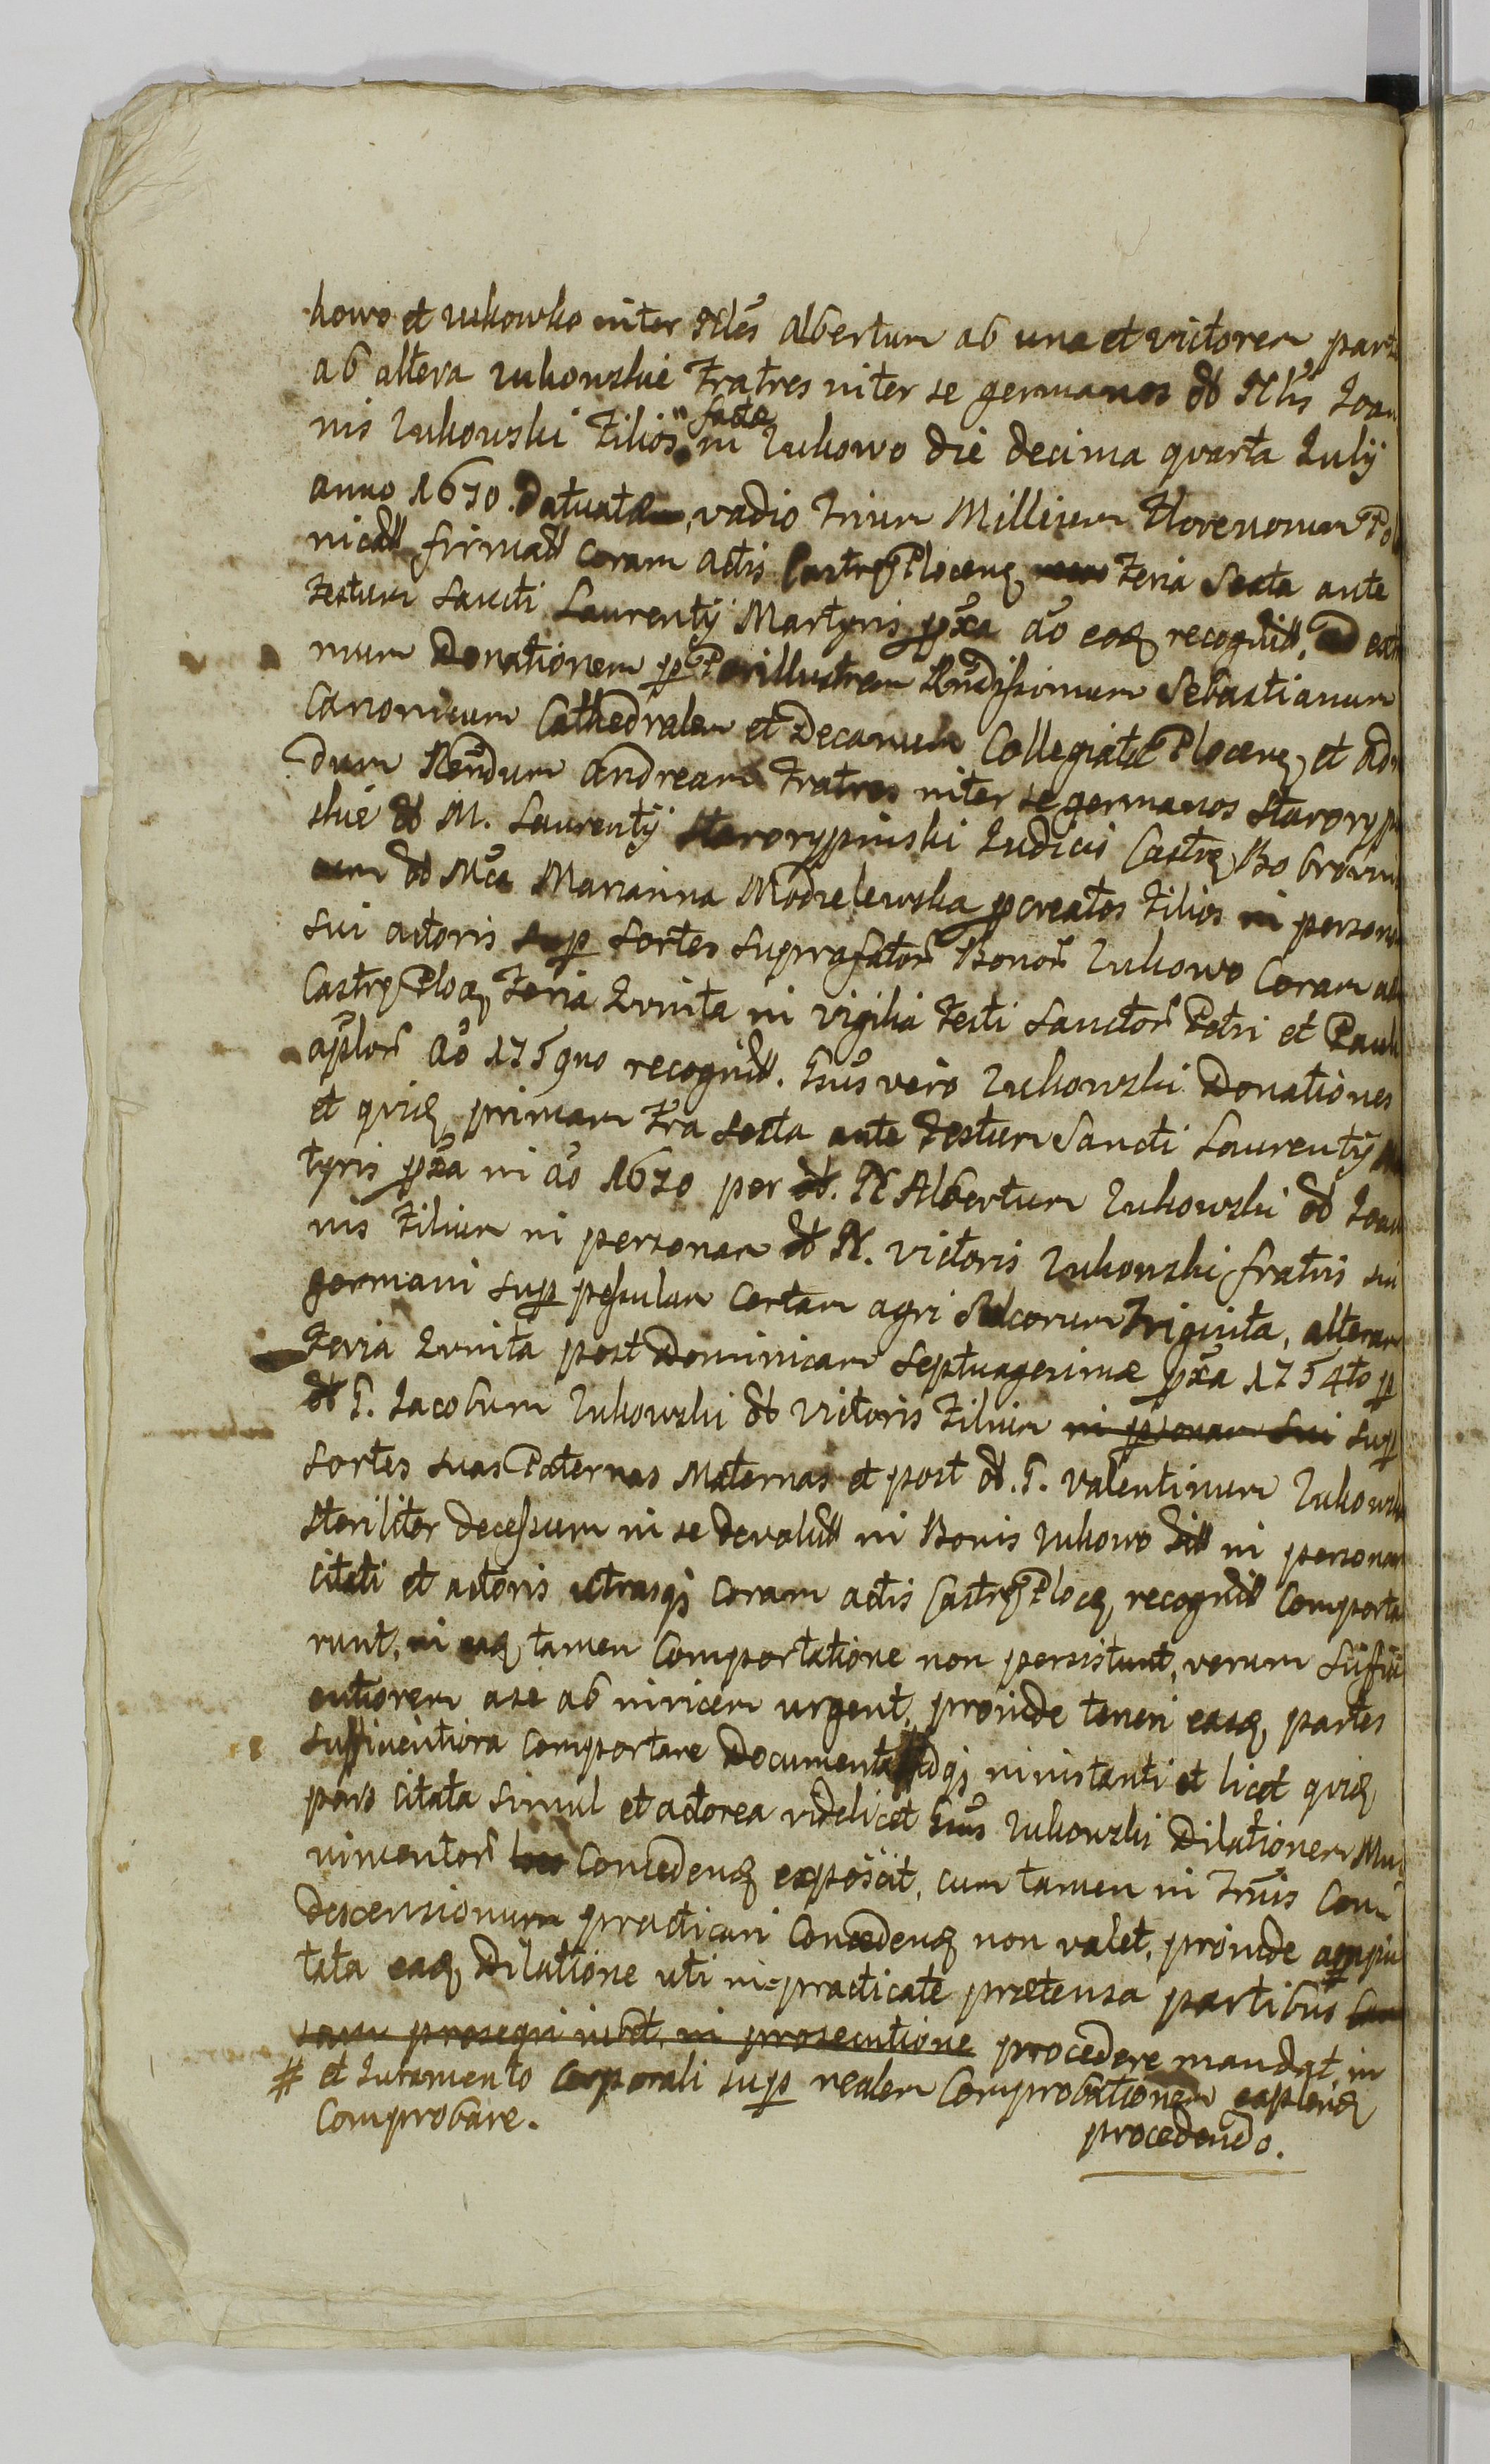 kowo et zukowko inter Nles Albertum ab una et victorem parte
ab altera zukowskie Fratres inter se germanos olim Nlis Joan
nis Zukowski Filios facta in Zukowo die decima quarta Julij
anno 1670. Datuatæ, vadio Trium Millium Florenorum Pol
nicall firmatt Coram actis Castreñ Plocens Feria Sexta ante
Festum Sancti Laurentij Martyris pxa ao eoq recognitt.
num Donationem per Perillustrem Rndissimum Sebastianum
Canonicum Cathedralem et Decanum Collegiatæ Plocens et Adm
dum Rendum Andream Fratres inter se germanos Starorypi
skie olim M. Laurentij Starorypinski Judicis Castrẽ Bobrovni
cum olim Mca Marianna Modzelewska pcreatos Filios in personam
sui actoris sup sortes suprafator Bonor Zukowo Coram
Castreñ Ploceñ Feria Quinta in vigilia Festi Sanctor Petri et Pauli
aplor ao 1759no recognitt. Gsus vero Zukowski Donationes
et quidẽ primam Fra Sexta ante Festum Sancti Laurentij
tyris pxa in ao 1670 per olim. N Albertum Zukowski olim Joan
nis Filium in personam olim N. victoris Zukowski fratris sui
germani sup peculam certam agri Sulcorum Triginta, alteram
Feria Quinta post Dominicam Septuagesimæ pxa 1754to p
olim G. Jacobum Zukowski olim victoris Filium in psonam sui sup
sortes suas Paternas Maternas et post olim. G. valentinum Zukowski
steriliter decessum in se devolutt in Bonis Zukowo sitt in personam
citati et actoris utrasq coram actis Castreñ Ploceñ recognitt Comporta
runt, in eaq tamen Comportatione non persistunt, verum Suffici
entiorem a se ab invicem urgent, proinde teneri easq partes
sufficientiora comportare Documenta # Idq in instanti et licet quidẽ
pars citata simul et actorea videlicet Gsus Zukowski Dilationem Mu
nimentor Concedenꝺ exposcit, cum tamen in Trnis Con
descensionum practicari Concedenꝺ non valet, proinde
tata eaq Dilatione uti in-practicate prætensa partibus
sam prosequi iubet, in prosecutione procedere mandat, in
# et Juramento Corporali sup realem Comprobationem explenꝺ
Comprobare. procedendo.